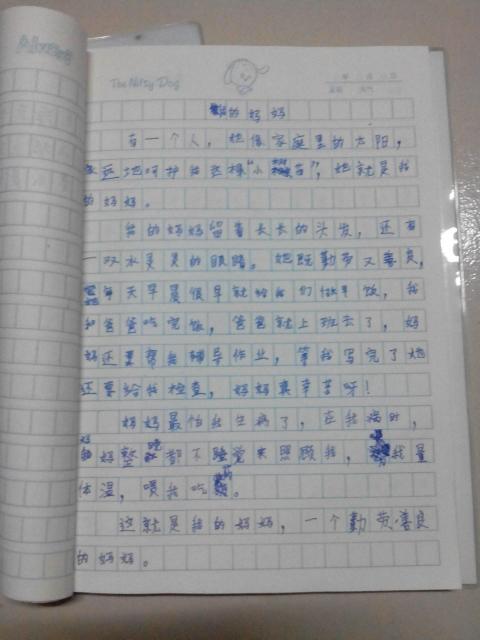 The Nitsy Dog
年 月 日
星期 天气
我的妈妈
有一个人，她像家庭里的太阳，
永远地呵护我这棵“小树苗”，她就是我
的妈妈。
我的妈妈留着长长的头发，还有
一双水灵灵的眼睛。她既勤劳又善良，
每天早晨很早就给我们做早饭，我
和爸爸吃完饭，爸爸就上班去了，妈
妈还要帮我辅导作业，等我写完了她
还要给我检查，妈妈真辛苦呀！
妈妈最怕我生病了，在我病时，
妈妈整晚都不睡觉来照顾我，我量
体温，喂我吃药。
这就是我的妈妈，一个勤劳善良
的妈妈。